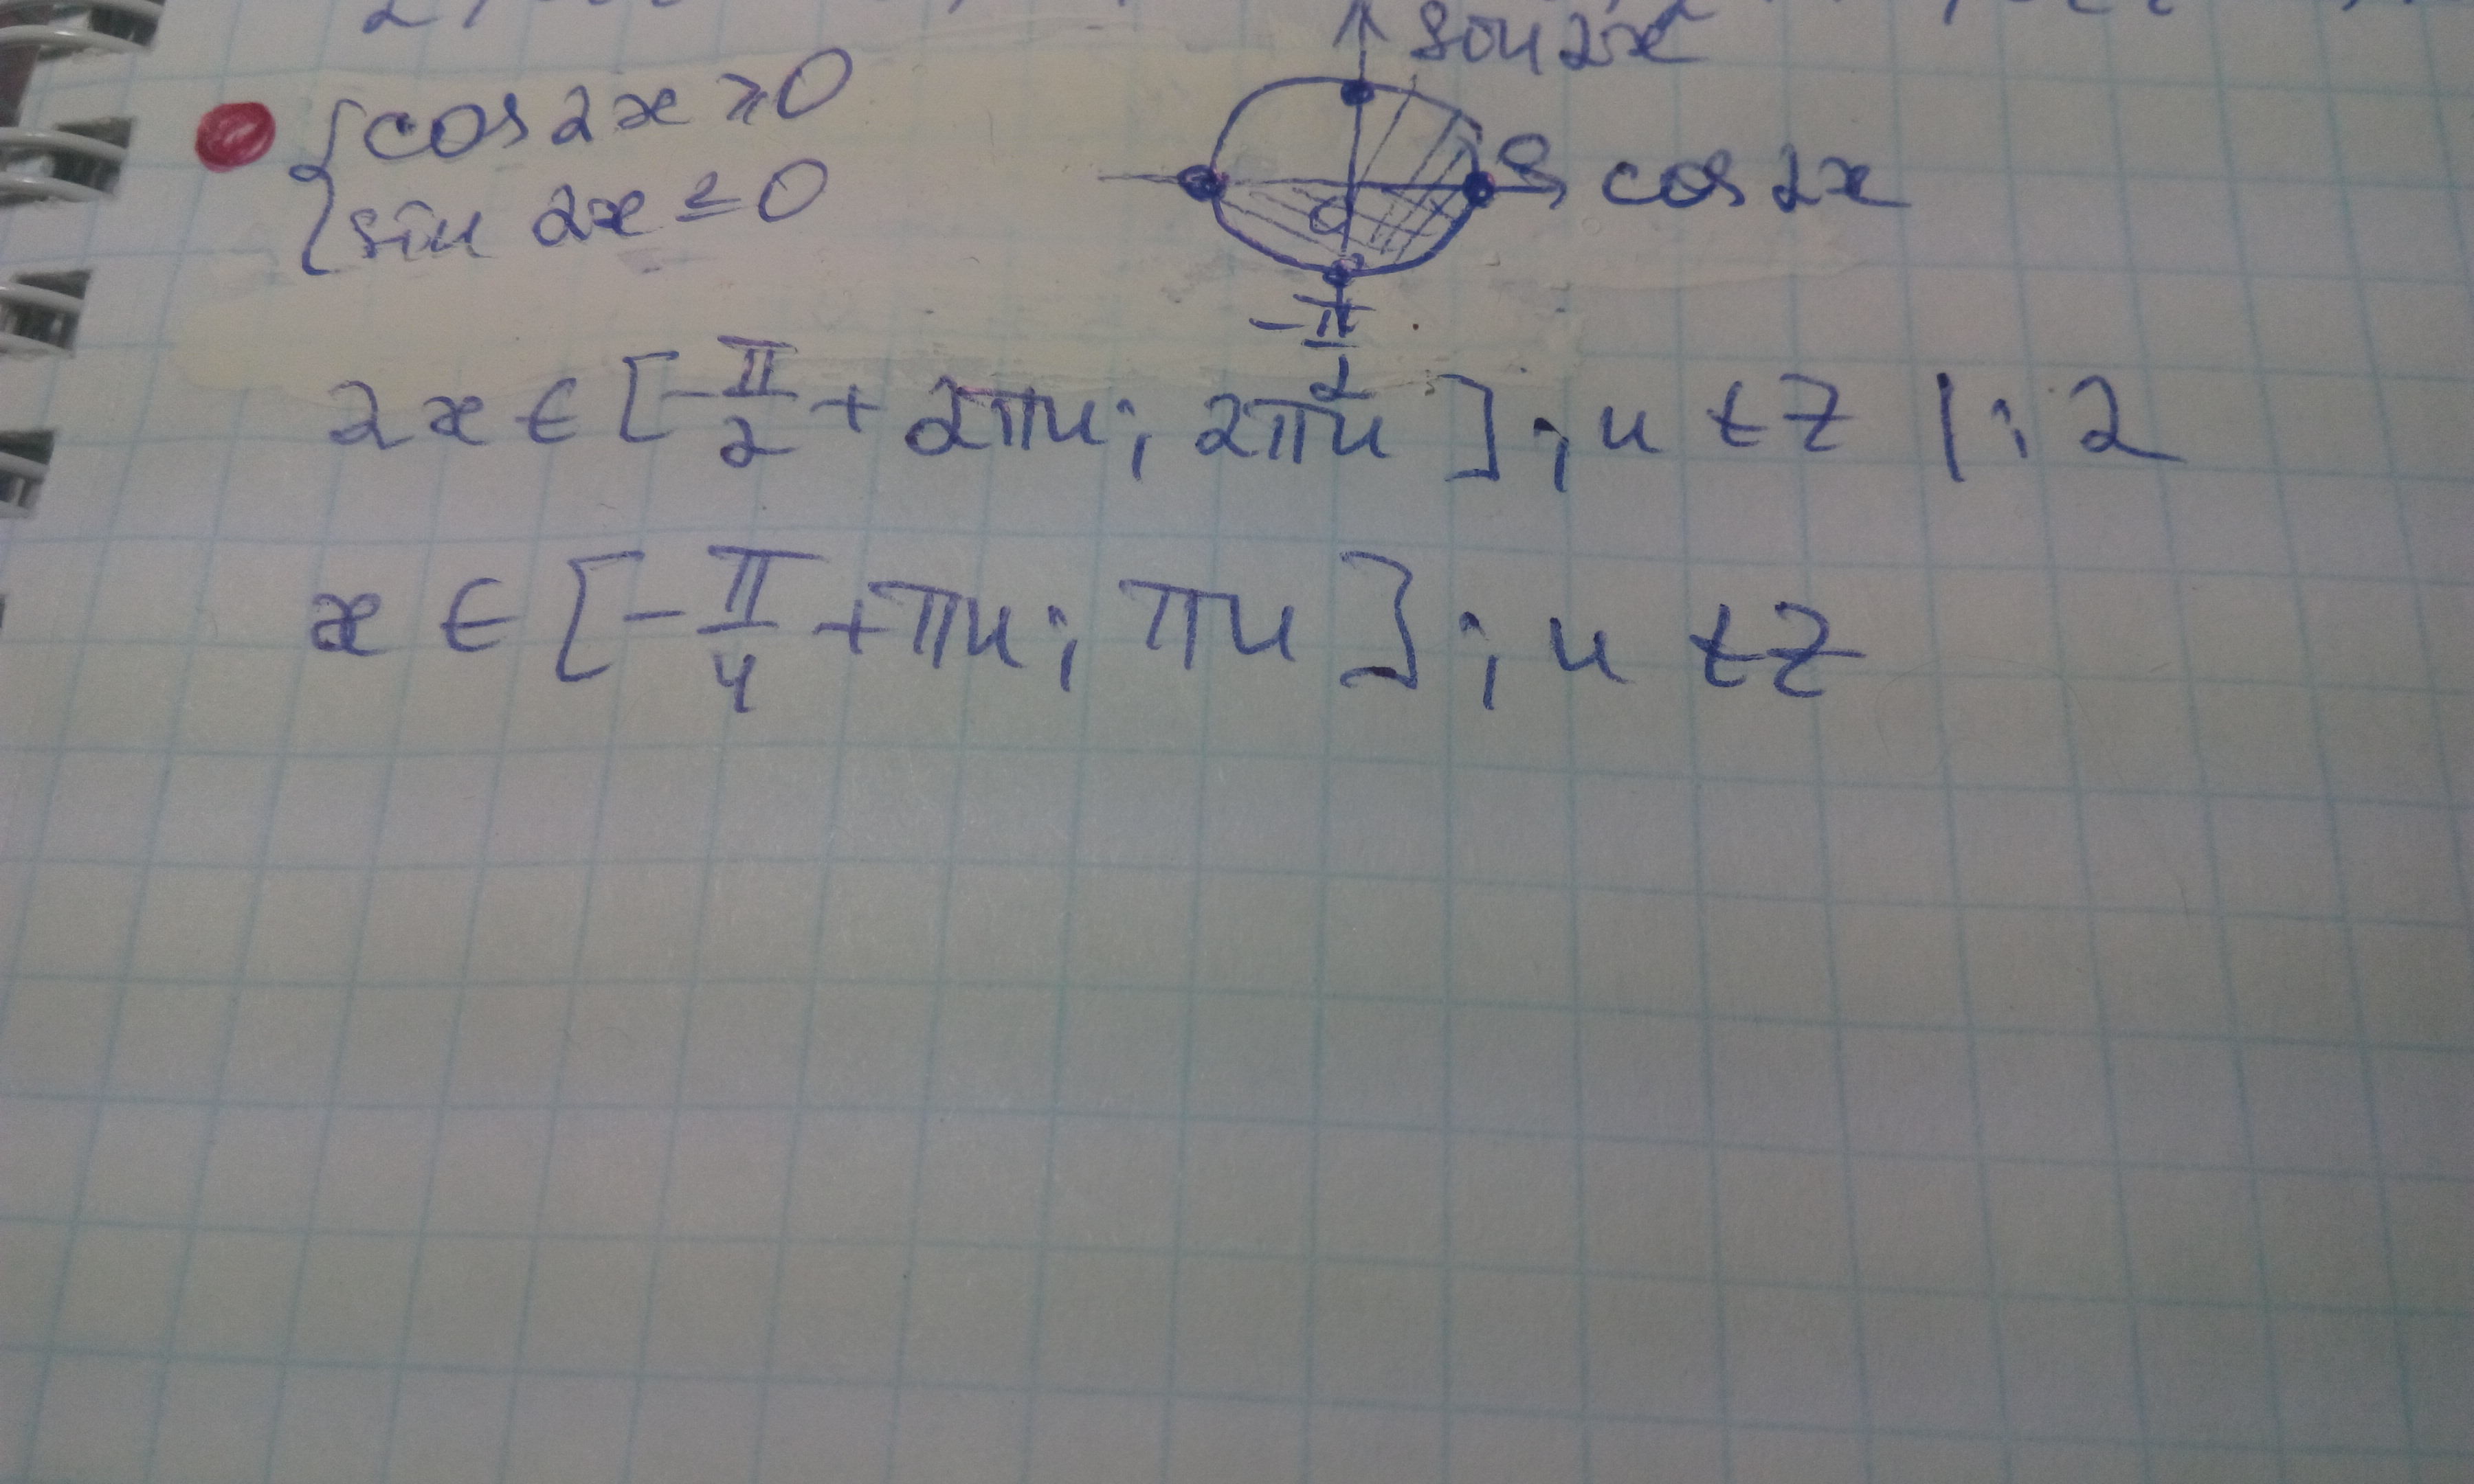 {cos 2x ⩾ 0
{sin 2x ≤ 0
sin 2x
0 cos 2x
-π/2
2x ∈ [-π/2 + 2πn; 2πn]; n ∈ Z | : 2
x ∈ [-π/4 + πn; πn]; n ∈ Z